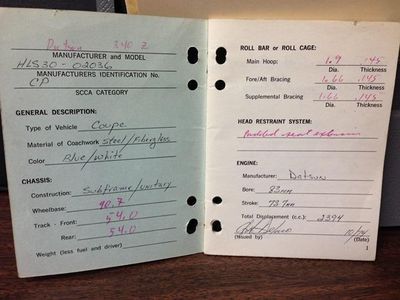 Datsun 240 Z
MANUFACTURER and MODEL
HLS30 - 02036
MANUFACTURERS IDENTIFICATION No.
CP
SCCA CATEGORY
GENERAL DESCRIPTION:
Type of Vehicle Coupe
Material of Coachwork Steel/Fiberglass
Color Blue/White
CHASSIS:
Construction: Subframe/unitary
Wheelbase: 90.7
Track - Front: 54.0
Rear: 53.0
Weight (less fuel and driver)
ROLL BAR or ROLL CAGE:
Main Hoop: 1.9 .145
Dia. Thickness
Fore/Aft Bracing 1.66 .145
Dia. Thickness
Supplemental Bracing 1.66 .145
Dia. Thickness
HEAD RESTRAINT SYSTEM:
Padded seat extension
ENGINE:
Manufacturer: Datsun
Bore: 83mm
Stroke: 73.7mm
Total Displacement (c.c.): 2394
(Issued by) (Date)
1